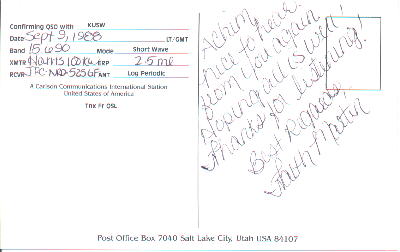 Confirming QSO with KUSW
Date Sept 9, 1988 UT/GMT
Band 15690 Mode Short Wave
XMTR Harris 100kw ERP 2.5 mE
RCVR JRC-NRD-525GF ANT Log Periodic
A Carlson Communications International Station
United States of America
Tnx Fr QSL
Achim,
nice to hear
from you again.
Hoping all is well!
Thanks for listening!
Best Regards,
Faith Martin
Post Office Box 7040 Salt Lake City, Utah USA 84107